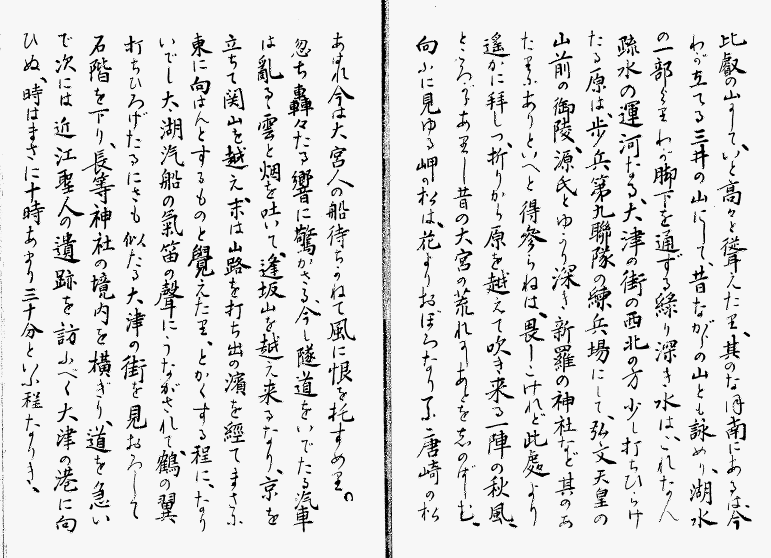 比叡の山にして、いと高々と聳えたり、其のなほ南にあるは、今
わが立てる三井の山にして、昔ながらの山とも詠めり、湖水
の一部よりわが脚下を通ずる緑り深き水は、これなん
疏水の運河なる、大津の街の西北の方少し打ちひらけ
たる原は、歩兵第九聯隊の練兵場にして、弘文天皇の
山前の御陵、源氏とゆかり深き新羅の神社など其のあ
たりにありといへど得參らねは、畏しこけれど此處より
遙かに拝しつ、折りから原を越えて吹き来る一陣の秋風、
ところがらあはれ昔の大宮の荒れにしあとを志のばしむ、
向ふに見ゆる岬の松は、花よりおぼろなりの唐崎の松
あはれ今は大宮人の船待ちかねて風に恨を托すめり。
忽ち轟々たる響に驚かさる、今し隧道をいでたる汽車
は亂るゝ雲と烟を吐いて、逢坂山を越え来るなり、京を
立ちて関山を越え、末は山路を打ち出の濱を經てまさに
東に向はんとするものと覺えたり、とかくする程に、なり
いでし太湖汽船の氣笛の聲にうながされて、鶴の翼
打ちひろげたるにさも似たる大津の街を見おろして
石階を下り、長等神社の境内を横ぎり、道を急い
で次には近江聖人の遺跡を訪ふべく大津の港に向
ひぬ、時はまさに十時あまり三十分といふ程なりき、